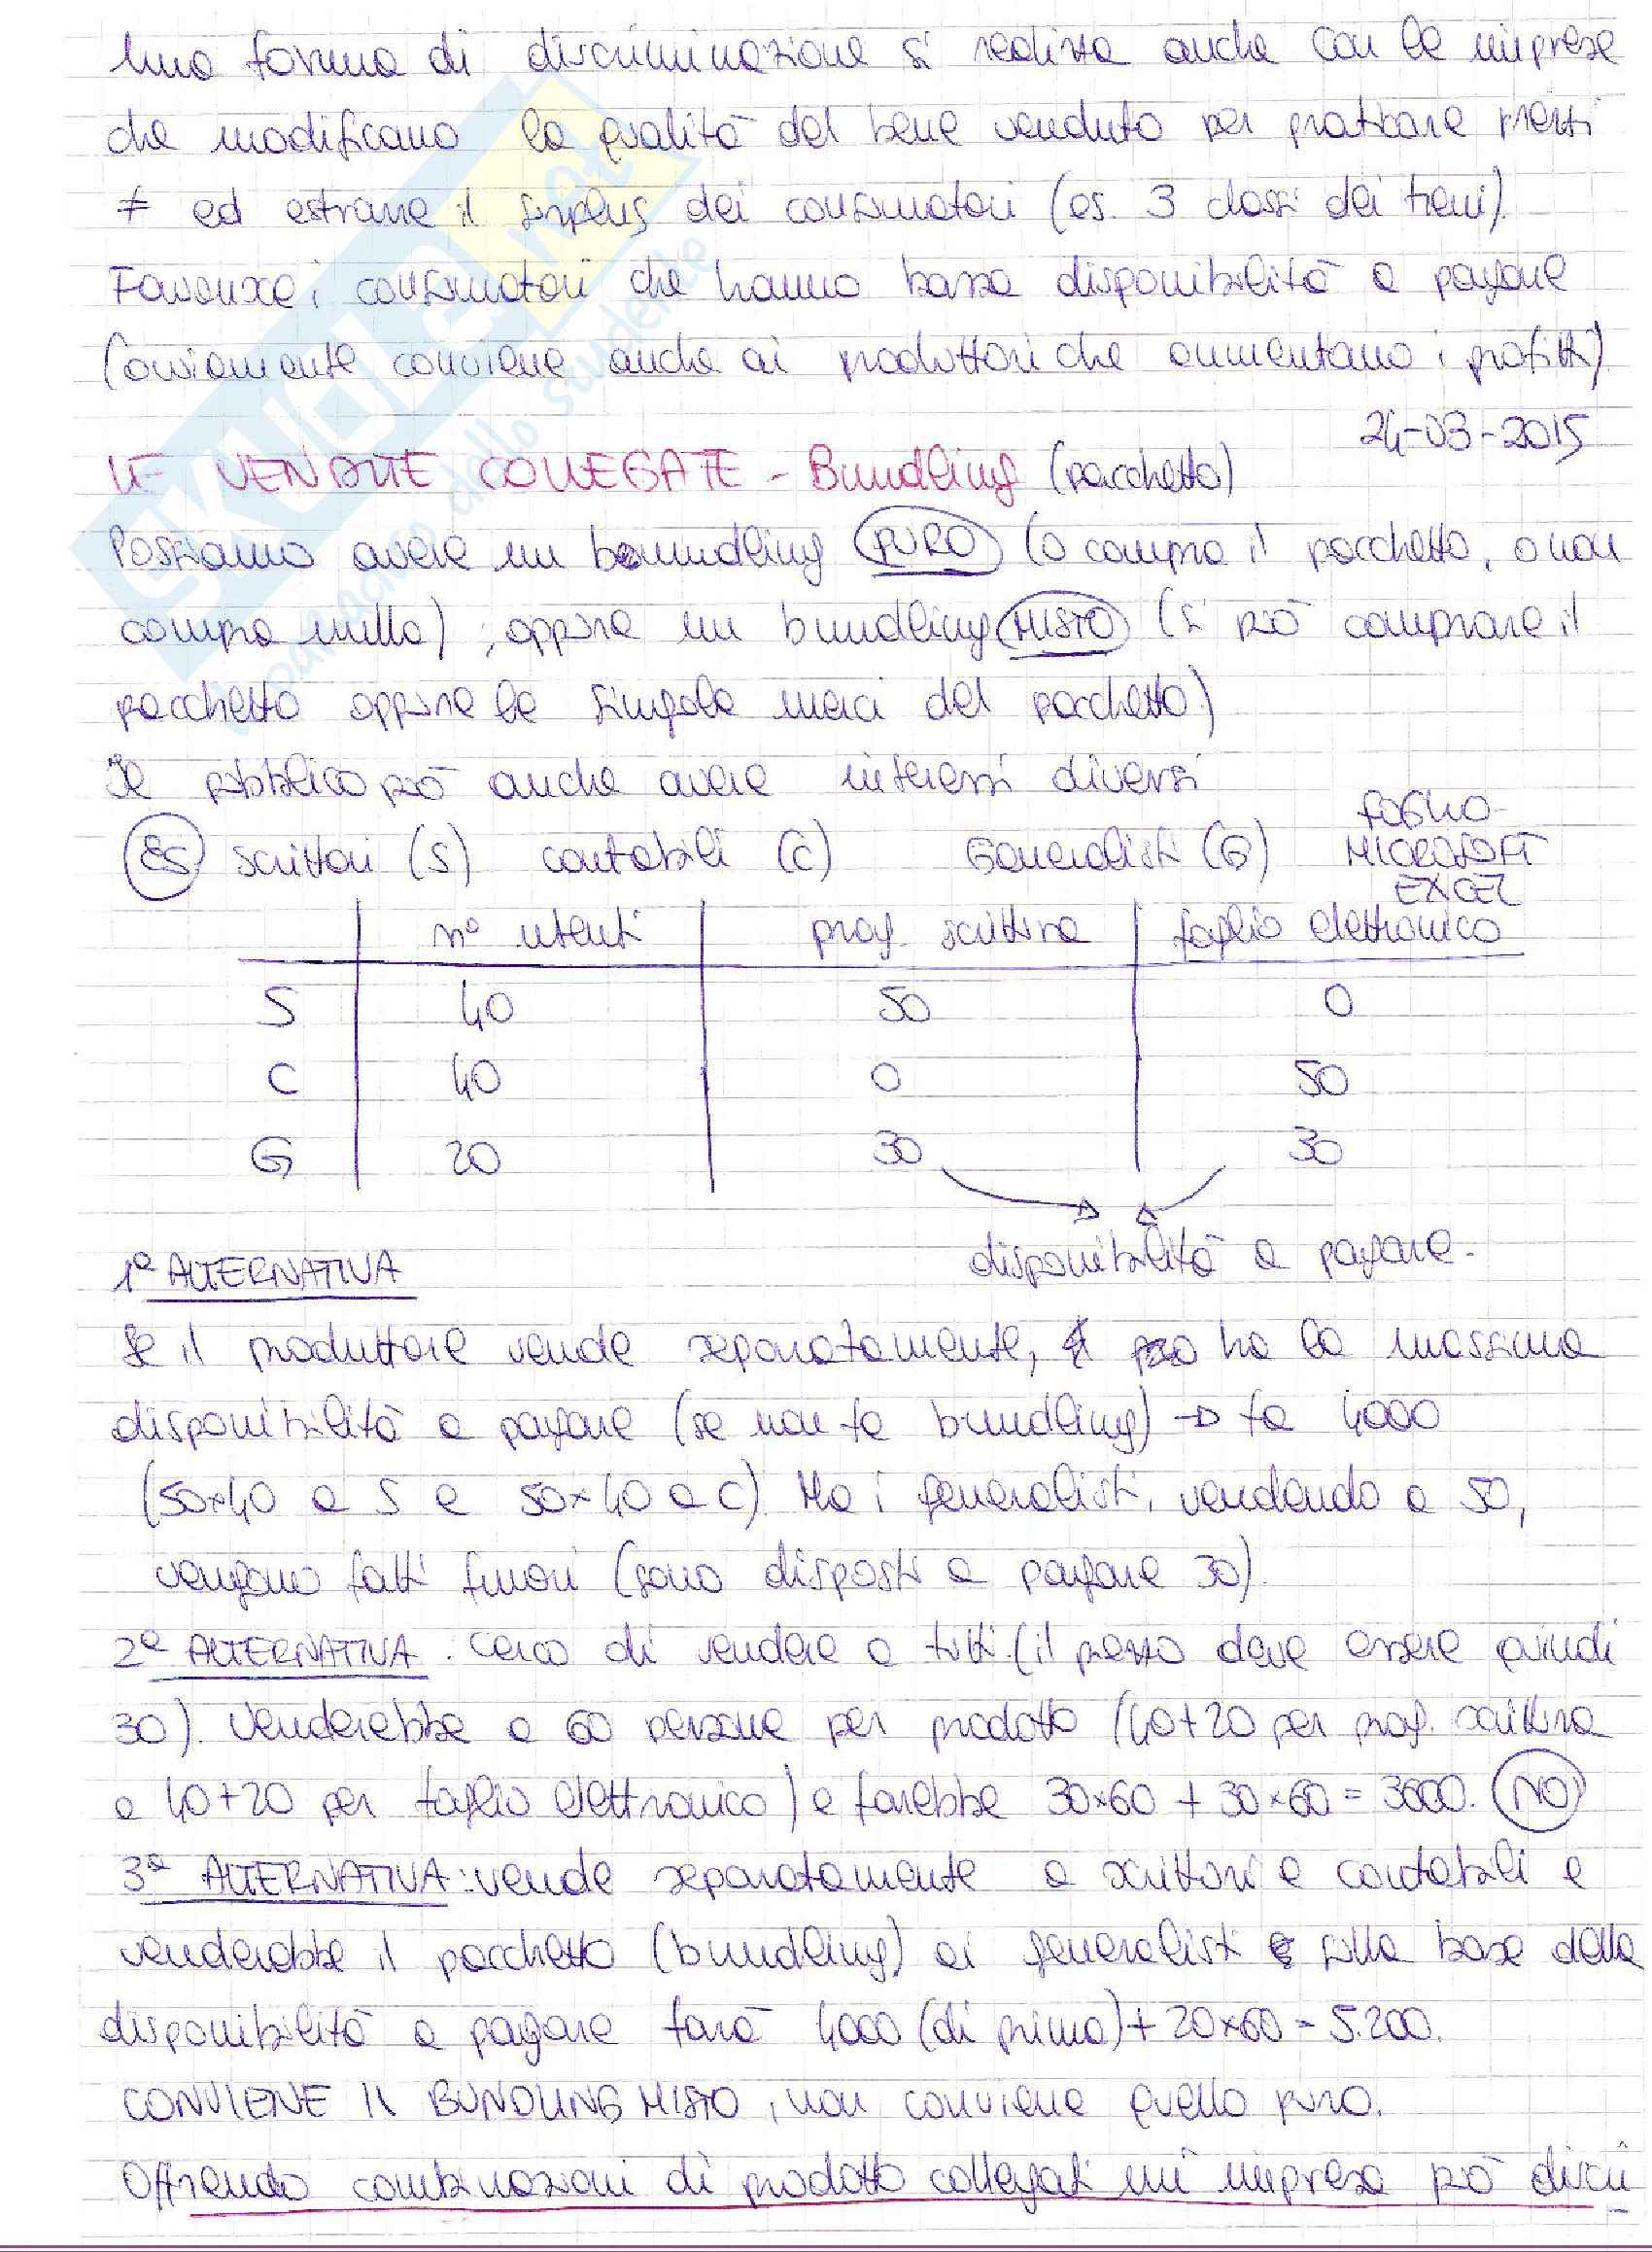 Una forma di discriminazione si realizza anche con le imprese
che modificano la qualità del bene venduto per praticare prezzi
≠ ed estrarre il surplus dei consumatori (es. 3 classi dei treni).
Favorisce i consumatori che hanno bassa disponibilità a pagare
(ovviamente conviene anche ai produttori che aumentano i profitti).
24-03-2015
LE VENDITE COLLEGATE - Bundling (pacchetto)
Possiamo avere un boundling PURO (o compro il pacchetto, o non
compro nulla), oppure un bundling MISTO (si può comprare il
pacchetto oppure le singole merci del pacchetto)
Il pubblico può anche avere interessi diversi
ES scrittori (S) contabili (C) Generalisti (G) FOGLIO-
MICROSOFT
EXCEL
n° utenti prog. scrittura foglio elettronico
S 40 50 0
C 40 0 50
G 20 30 30
disponibilità a pagare.
1ª ALTERNATIVA
Se il produttore vende separatamente, ha la massima
disponibilità a pagare (se non fa bundling) → fa 4000
(50×40 a S e 50×40 a C). Ma i generalisti, vendendo a 50,
vengono fatti fuori (sono disposti a pagare 30).
2ª ALTERNATIVA. Cerco di vendere a tutti (il prezzo deve essere quindi
30). Venderebbe a 60 persone per prodotto (40+20 per prog. scrittura
e 40+20 per foglio elettronico) e farebbe 30×60 + 30×60 = 3600. NO!
3ª ALTERNATIVA: vende separatamente a scrittori e contabili e
venderebbe il pacchetto (bundling) ai generalisti sulla base della
disponibilità a pagare farà 4000 (di prima) + 20×60 = 5.200.
CONVIENE IL BUNDLING MISTO, non conviene quello puro.
Offrendo combinazioni di prodotto collegati un'impresa può discri-
SKUOLA.net
il paradiso dello studente